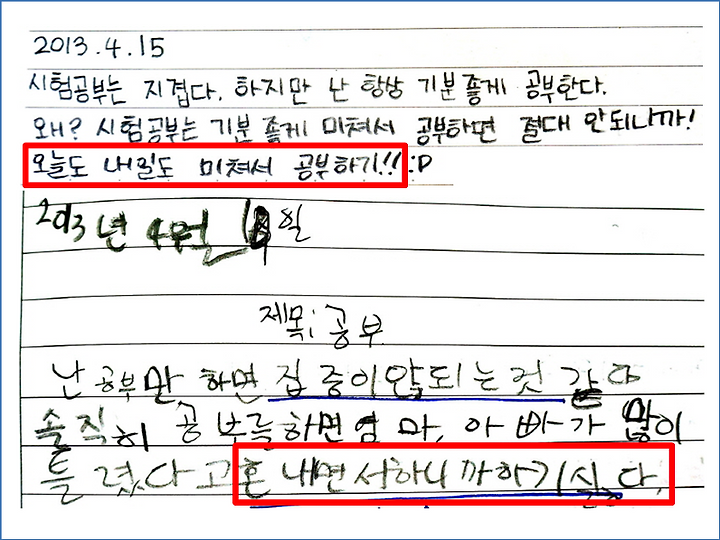 2013.4.15
시험공부는 지겹다. 하지만 난 항상 기분좋게 공부한다.
왜? 시험공부는 기분 좋게 미쳐서 공부하면 절대 안되니까!
오늘도 내일도 미쳐서 공부하기!! :D
2013년 4월 일
제목: 공부
난 공부만 하면 집중이 안되는것 같다
솔직히 공부를하면 엄마, 아빠가 많이
틀렸다고 혼내면서하니까하기싫다.